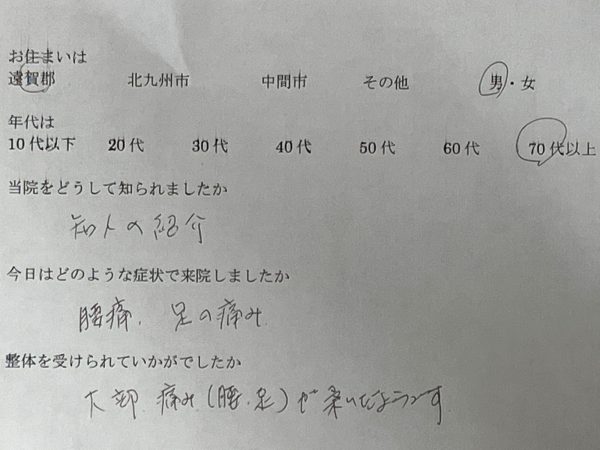 お住まいは
遠賀郡 北九州市 中間市 その他 男・女
年代は
10代以下 20代 30代 40代 50代 60代 70代以上
当院をどうして知られましたか
知人の紹介
今日はどのような症状で来院しましたか
腰痛、足の痛み
整体を受けられていかがでしたか
大部 痛み(腰、足)が楽いだようです